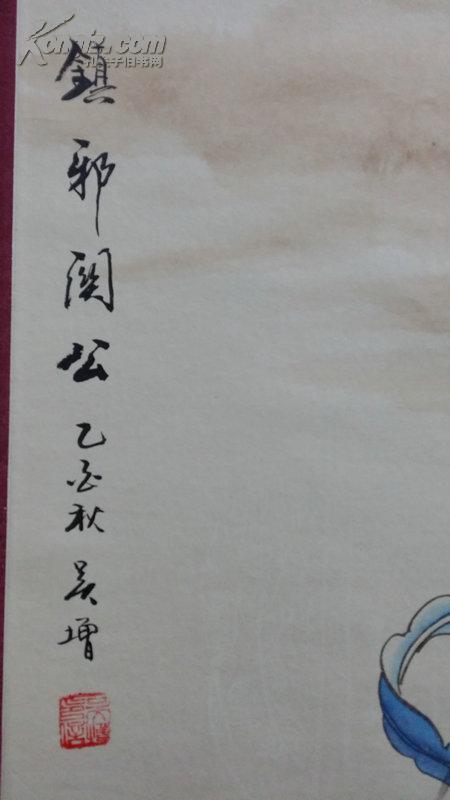 Kongfz.com
孔夫子旧书网
鎮邪関公 乙酉秋 吴增